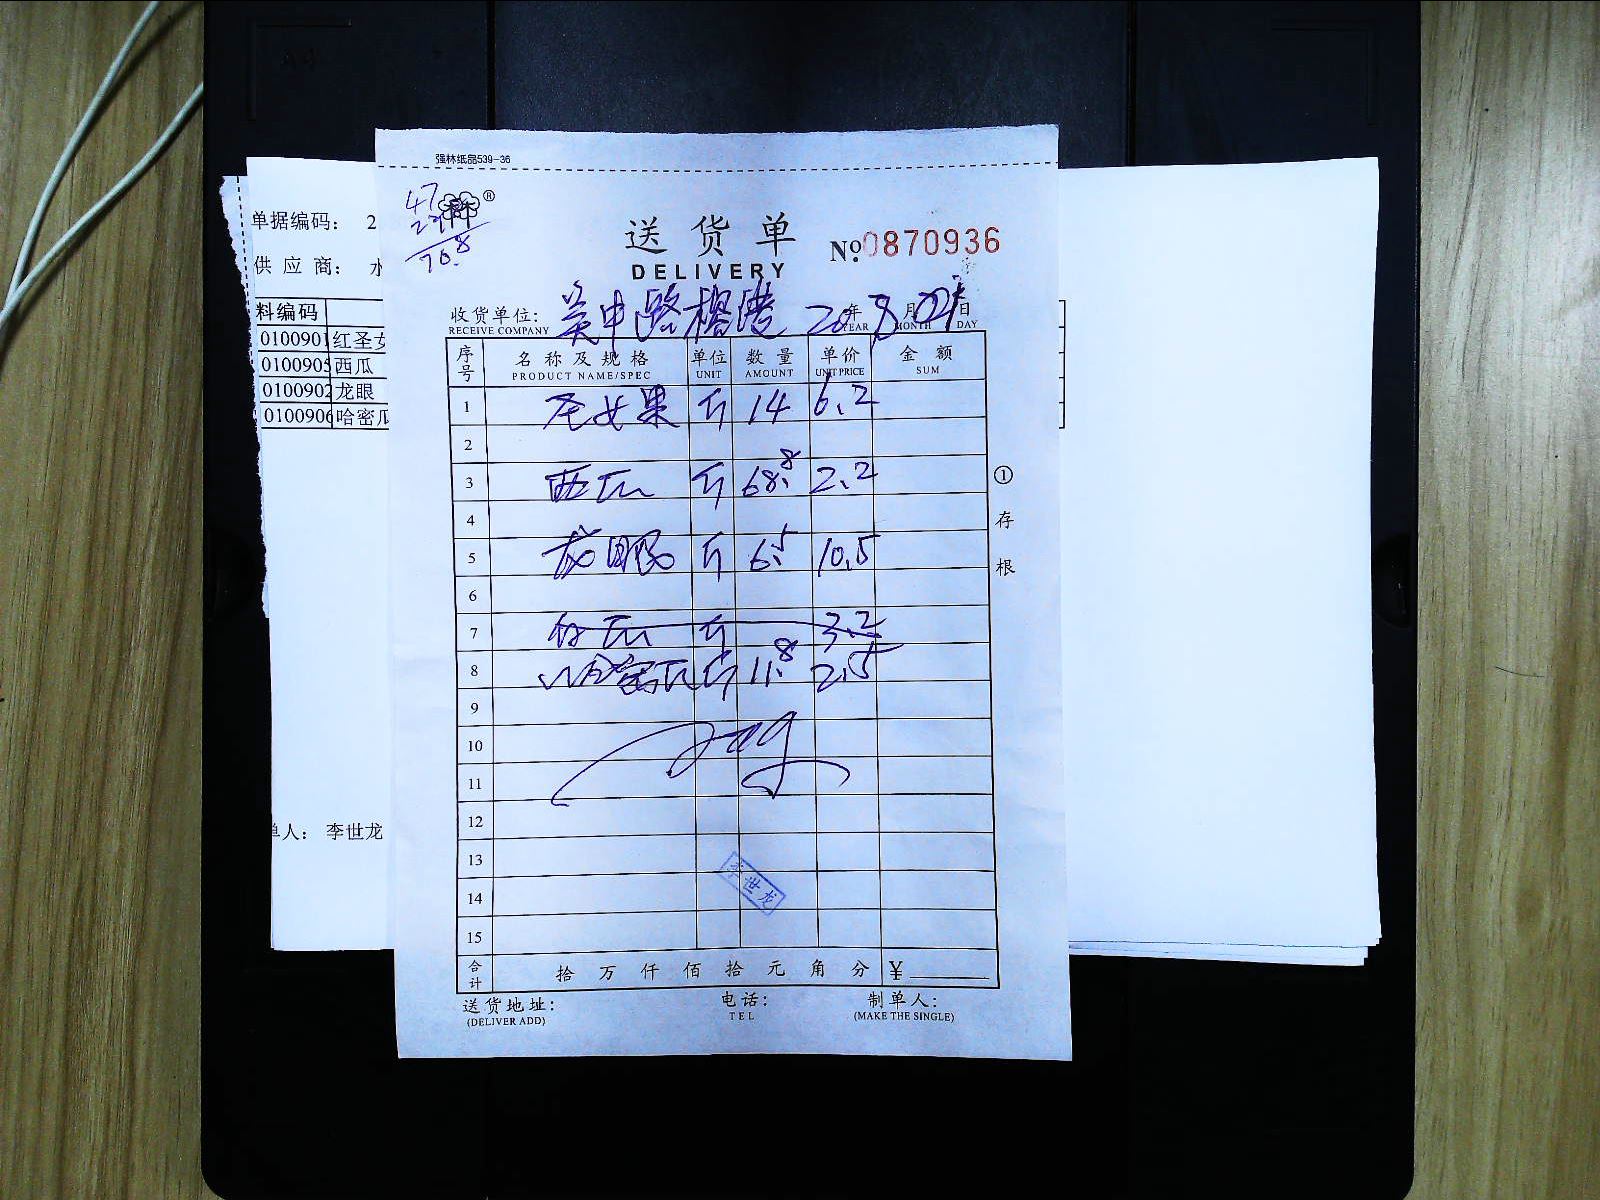 强林纸品539-36
47
23.8
70.8
®
送货单
DELIVERY
№ 0870936
收货单位：吴中路 年 月 日
RECEIVE COMPANY YEAR MONTH DAY
序号 名称及规格 单位 数量 单价 金额
PRODUCT NAME/SPEC UNIT AMOUNT UNIT PRICE SUM
1 圣女果 斤 14 6.2
2
3 西瓜 斤 68.8 2.2
4
5 龙眼 斤 6.5 10.5
6
7 斤 3.2
8 哈密瓜 斤 11.8 2.5
9
10
11
12
13
14
15
李世龙
合计 拾 万 仟 佰 拾 元 角 分 ¥
送货地址： 电话： 制单人：
(DELIVER ADD) TEL (MAKE THE SINGLE)
①存根
单据编码： 2
供应商：
料编码
0100901 红圣女
0100905 西瓜
0100902 龙眼
0100906 哈密瓜
单人： 李世龙